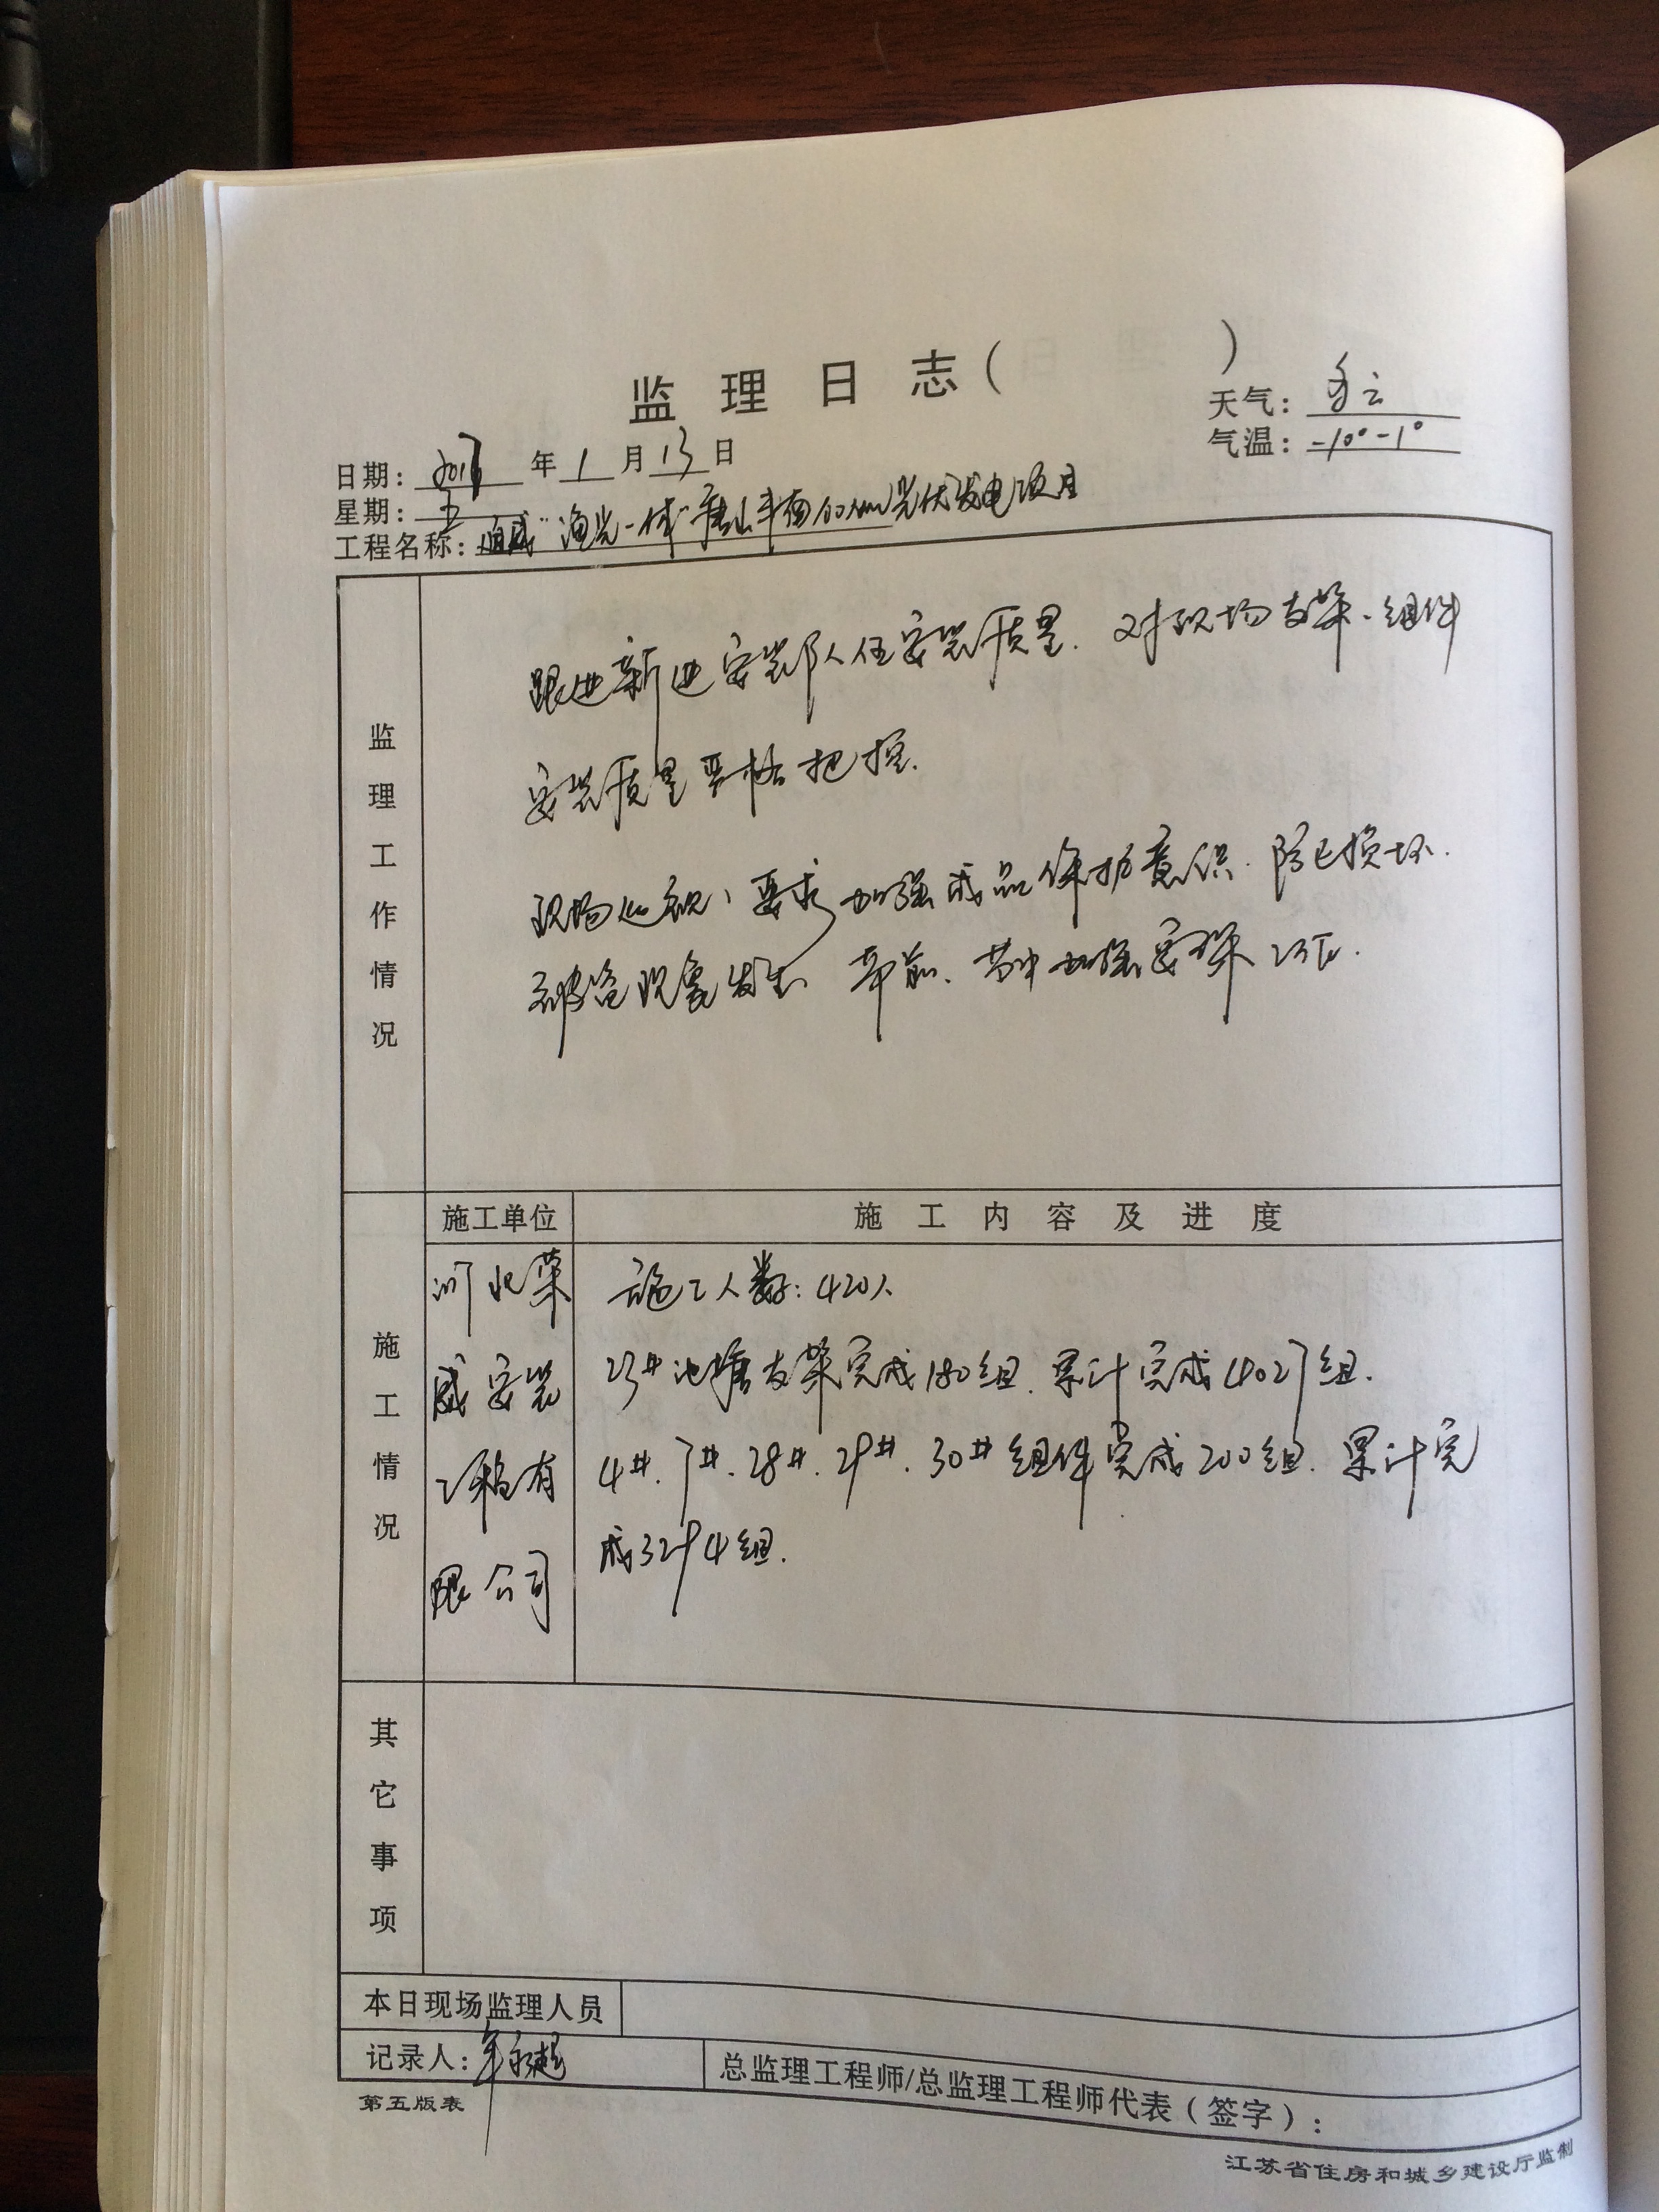 监理日志(　　　)
天气：多云
气温：-10°-1°
日期：2017年1月13日
星期：五
工程名称：通威"渔光一体"唐山丰南 光伏发电项目
监理工作情况
跟进新进安装队伍安装质量.对现场支架、组件
安装质量严格把控.
现场巡视,要求加强成品保护意识.防止损坏
现象发生. 节前、节中加强安保工作.
施工单位
施工内容及进度
施工情况
河北荣
威安装
工程有
限公司
施工人数:420人
23#池塘支架完成180组.累计完成4027组.
4#.7#.28#.29#.30#组件完成200组.累计完
成3294组.
其它事项
本日现场监理人员
记录人：
总监理工程师/总监理工程师代表（签字）：
第五版表
江苏省住房和城乡建设厅监制